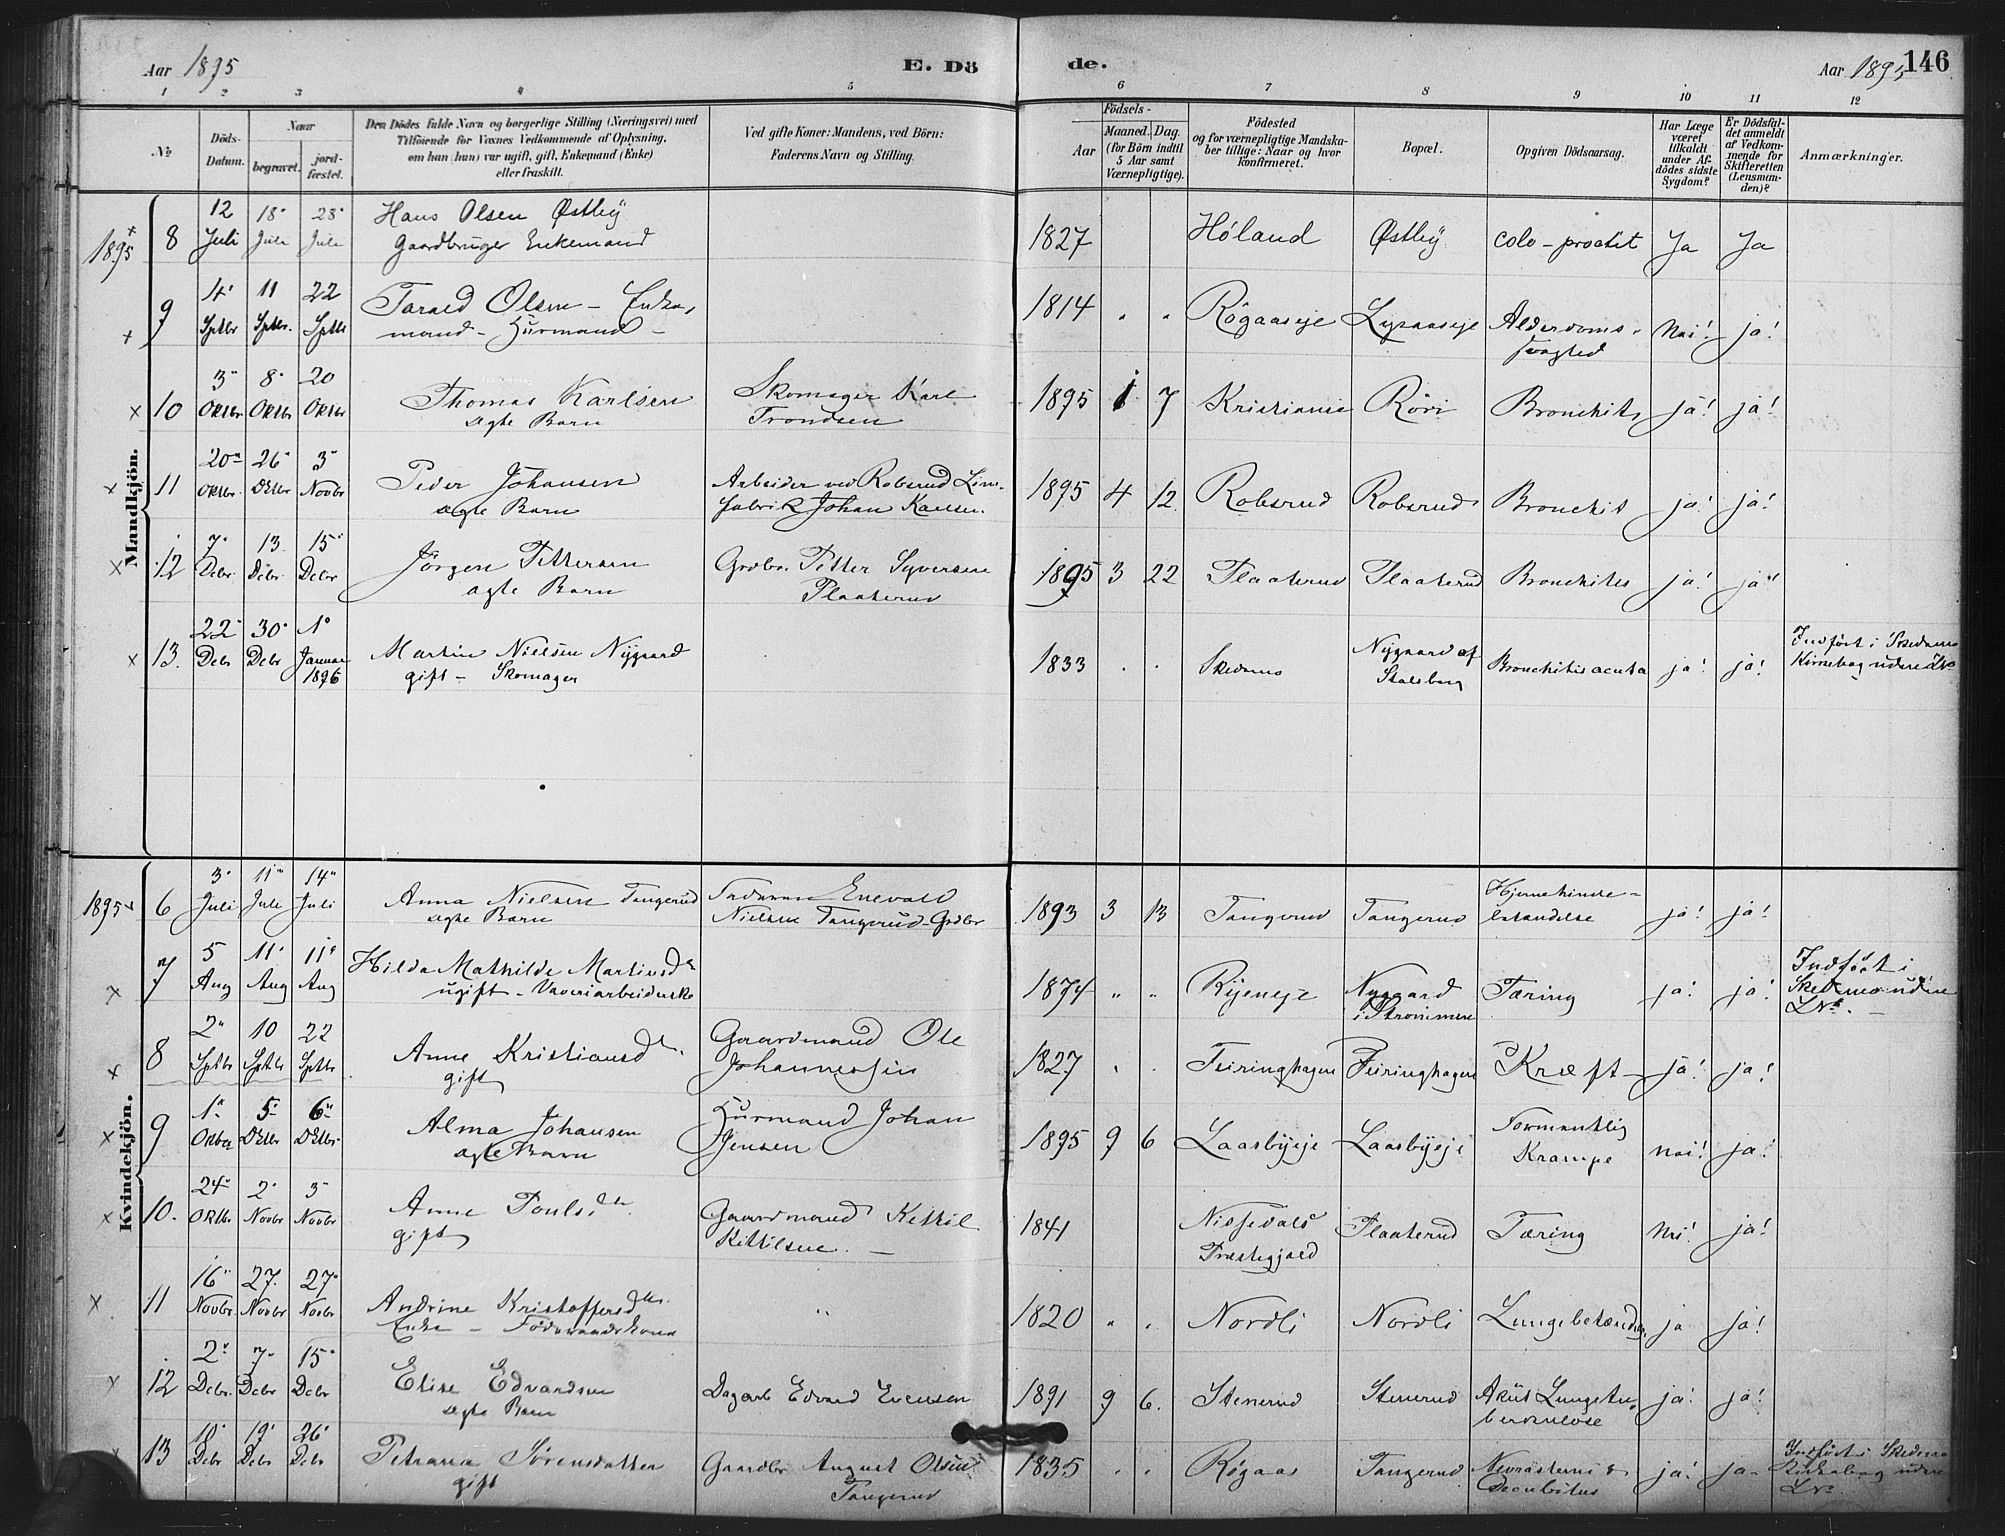 Aar 1895
E. Dö
de.
Aar 1895
146
1 2 3 4 5 6 7 8 9 10 11 12
№
Döds-
Datum.
Naar
begravet.
jord-
fæstet.
Den Dödes fulde Navn og borgerlige Stilling (Næringsvei) med
Tilföiende for Voxnes Vedkommende af Oplysning,
om han (hun) var ugift, gift, Enkemand (Enke)
eller fraskilt.
Ved gifte Koner: Mandens, ved Börn:
Faderens Navn og Stilling.
Födsels-
Aar
Maaned.
Dag.
(for Börn indtil
5 Aar samt
Værnepligtige).
Födested
og for værnepligtige Mandska-
ber tillige: Naar og hvor
konfirmeret.
Bopæl.
Opgiven Dödsaarsag.
Har Læge
været
tilkaldt
under Af-
dödes sidste
Sygdom?
Er Dödsfal-
det anmeldt
af Vedkom-
mende for
Skifteretten
(Lensman-
den)?
Anmærkninger.
Mandkjön.
1895 8 12 Juli 18 Juli 28 Juli Hans Olsen Østby 1827 Høland Østby colo-proctit Ja Ja
Gaardbruger Enkemand
9 4 Sptbr 11 Sptbr. 22 Sptbr Tarald Olsen - Enke- 1814 " " Røgaaseje Alderdoms- Nei! ja!
mand - Husmand - svaghed
10 3 Oktbr 8 Oktbr 20 Oktbr Thomas Karlsen Skomager Karl 1895 1 7 Kristiania Röri Bronchitis ja! ja!
ægte Barn Trondsen
11 20 Oktbr. 26 Oktbr 3 Novbr Peder Johansen Arbeider ved Robsrud Lim- 1895 4 12 Robsrud Robsrud Bronchit ja! ja!
ægte Barn fabrik Johan
12 7 Debr. 13 Debr. 15 Debr Jörgen Pettersen Grdbr. Petter Syversen 1895 3 22 Flaaterud Flaaterud Bronchites ja! ja!
ægte Barn Flaaterud
13. 22 Debr 30 Debr 1 Januar 1896 Martin Nielsen Nygaard 1833 " " Skedsmo Nygaard af Bronchitis acuta ja! ja! Indført i Skedsmo
gift - Skomager Stalsberg Kirkebog uden L№
Kvindekjön.
1895 6 3 Juli 11 Juli 14 Juli Anna Nielsen Tangerud Enevald 1893 3 13 Tangerud Tangerud Hjernehinde- ja! ja!
ægte Barn Nielsen Tangerud - Grdbr betændelse
7 5 Aug 11 Aug 11 Aug Hilda Mathilde Martinsdtr 1874 " " Ryeneje Nygaard Tæring ja! ja! Indført i
ugift - Væveriarbeiderske i Strømmen Skedsmo uden
L№. -
8 2 Sptbr 10 Sptbr 22 Sptbr Anne Kristiansdtr. Gaardmand Ole 1827 " " Feiringhagen Feiringhagen Kræft - ja! ja!
gift Johannessen
9 1 Oktbr 5 Oktbr 6 Oktbr Alma Johansen Husmand Johan 1895 9 6 Laasbyeje Laasbyeje Formentlig nei! ja!
ægte Barn Jensen Krampe
10. 24 Oktbr 2 Novbr 3 Novbr Anne Poulsdtr Gaardmand Kittil 1841 Nissedals Flaaterud Tæring Nei! ja!
gift Kittilsen. - Præstegjæld
11 16 Novbr 27. Novbr 27 Novbr Andrine Kristoffersdtr. " 1820 " " Nordli Nordli Lungebetændelse ja ja!
Enke - Føderaadskone
12 2 Debr. 7 Debr 15 Debr Elise Edvardsen Dagarb Edvard Evensen 1891 9 6. Stenerud Stenerud Akut Lungetu- ja! ja!
ægte Barn berkulose
13 Debr 19 Debr 26 Debr Petrana Sørensdatter Gaardbr August Olsen 1835 " " Røgaas Tangerud ja! ja - Indført i Skedsmo
gift Tangerud Decubitus Kirkebog uden
L№